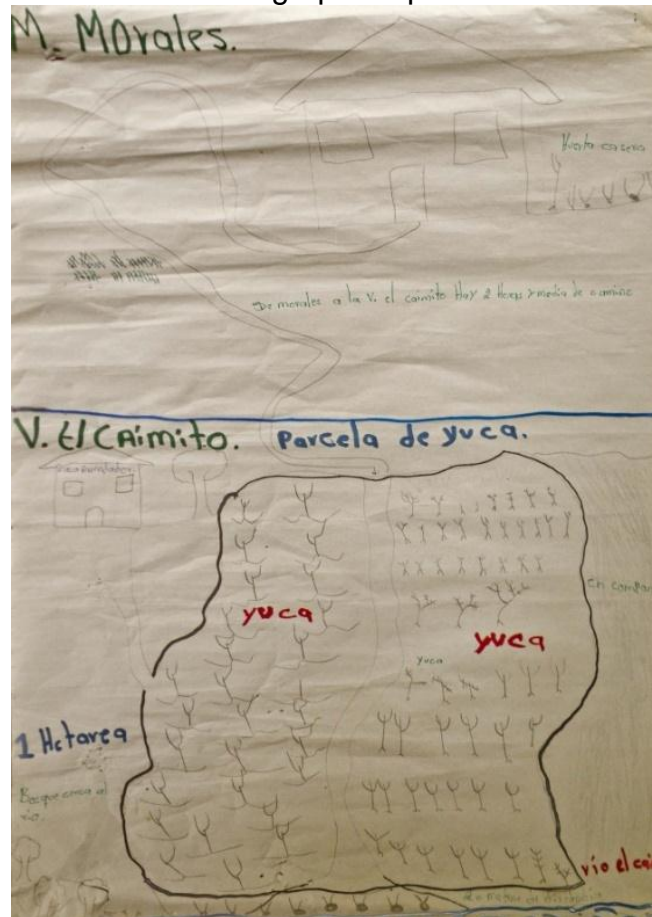 M. Morales.
Huerta casera
De morales a la V. el caimito Hay 2 Horas y media de camino
V. El CAimito. Parcela de yuca.
yuca
yuca
yuca
en compa
1 Hctarea
Bosque cerca al
rio.
rio el cai